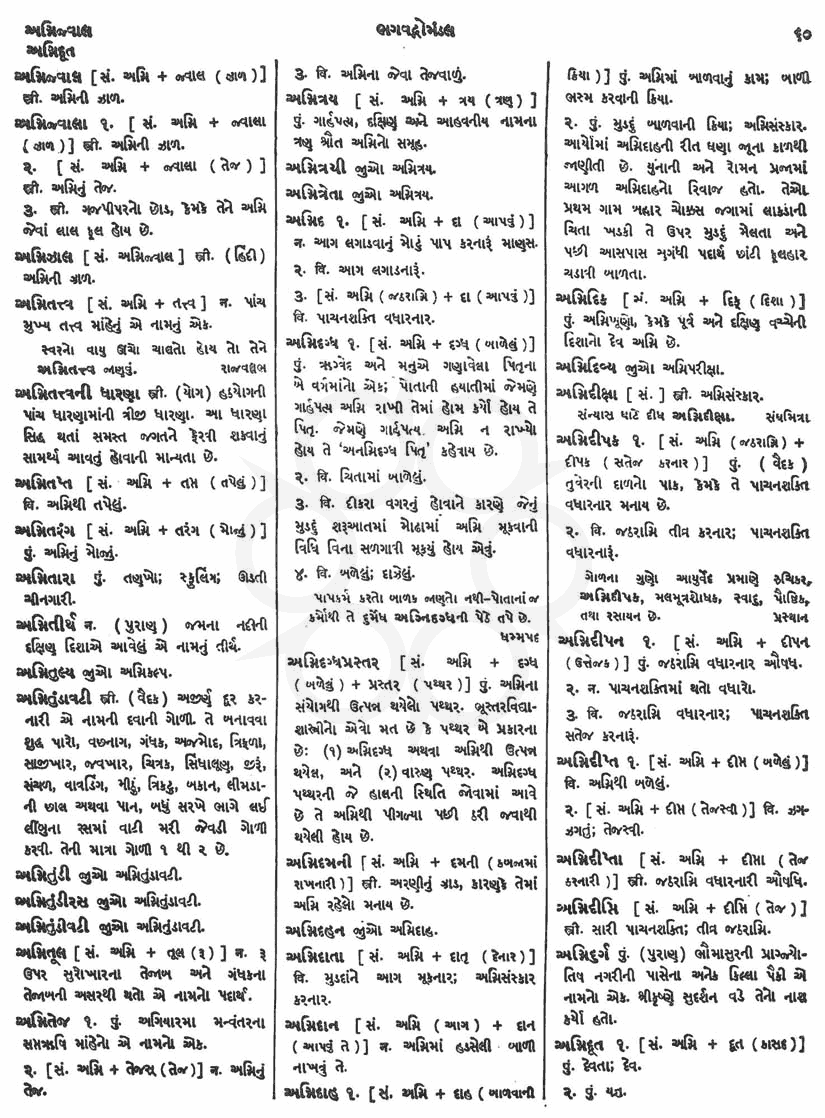 અગ્નિજ્વાલ
અગ્નિદૂત
ભગવદ્ગોમંડલ
૬૦
અગ્નિજ્વાલ [ સં. અગ્નિ + જ્વાલ ( ઝાળ )]
સ્ત્રી. અગ્નિની ઝાળ.
અગ્નિજ્વાલા ૧. [ સં. અગ્નિ + જ્વાલા
( ઝાળ )] સ્ત્રી. અગ્નિની ઝાળ.
૨. [ સં. અગ્નિ + જ્વાલા ( તેજ )]
સ્ત્રી. અગ્નિનું તેજ.
૩. સ્ત્રી. ગજપીપરનો છોડ, કેમકે તેને અગ્નિ
જેવાં લાલ ફૂલ હોય છે.
અગ્નિઝાલ [ સં. અગ્નિજ્વાલ ] સ્ત્રી. ( હિંદી )
અગ્નિની ઝાળ.
અગ્નિતત્ત્વ [ સં. અગ્નિ + તત્ત્વ ] ન. પાંચ
મુખ્ય તત્ત્વ માંહેનું એ નામનું એક.
સ્વરનો વાયુ ઊંચો ચાલતો હોય તો તેને
અગ્નિતત્ત્વ જાણવું. રાજવલ્લભ
અગ્નિતત્ત્વની ધારણા સ્ત્રી. (યોગ) હઠયોગની
પાંચ ધારણામાંની ત્રીજી ધારણા. આ ધારણા
સિદ્ધ થતાં સમસ્ત જગતને ફેરવી શકવાનું
સામર્થ્ય આવતું હોવાની માન્યતા છે.
અગ્નિતપ્ત [ સં. અગ્નિ + તપ્ત ( તપેલું )]
વિ. અગ્નિથી તપેલું.
અગ્નિતરંગ [ સં. અગ્નિ + તરંગ ( મોજું )]
પું. અગ્નિનું મોજું.
અગ્નિતારા પું. તણખો; સ્ફુલિંગ; ઊડતી
ચીનગારી.
અગ્નિતીર્થ ન. ( પુરાણ ) જમના નદીની
દક્ષિણ દિશાએ આવેલું એ નામનું તીર્થ.
અગ્નિતુલ્ય જુઓ અગ્નિકલ્પ.
અગ્નિતુંડાવટી સ્ત્રી. (વૈદક) અજીર્ણ દૂર કર-
નારી એ નામની દવાની ગોળી. તે બનાવવા
શુદ્ધ પારો, વછનાગ, ગંધક, અજમોદ, ત્રિફળા,
સાજીખાર, જવખાર, ચિત્રક, સિંધાલૂણ, જીરૂં,
સંચળ, વાવડિંગ, મીઠું, ત્રિકટુ, બકાન, લીમડા-
ની છાલ અથવા પાન, બધું સરખે ભાગે લઈ
લીંબુના રસમાં વાટી મરી જેવડી ગોળી
કરવી. તેની માત્રા ગોળી ૧ થી ૨ છે.
અગ્નિતુંડી જુઓ અગ્નિતુંડાવટી.
અગ્નિતુંડીરસ જુઓ અગ્નિતુંડાવટી.
અગ્નિતુંડીવટી જુઓ અગ્નિતુંડાવટી.
અગ્નિતૂલ [ સં. અગ્નિ + તૂલ ( રૂ )] ન. રૂ
ઉપર સુરોખારના તેજાબ અને ગંધકના
તેજાબની અસરથી થતો એ નામનો પદાર્થ.
અગ્નિતેજ ૧. પું. અગિયારમા મન્વંતરના
સપ્તઋષિ માંહેનો એ નામનો એક.
૨. [ સં. અગ્નિ + તેજસ્ ( તેજ )] ન. અગ્નિનું
તેજ.
૩. વિ. અગ્નિના જેવા તેજવાળું.
અગ્નિત્રય [ સં. અગ્નિ + ત્રય ( ત્રણ ) ]
પું. ગાર્હપત્ય, દક્ષિણ અને આહવનીય નામના
ત્રણ શ્રૌત અગ્નિનો સમૂહ.
અગ્નિત્રયી જુઓ અગ્નિત્રય.
અગ્નિત્રેતા જુઓ અગ્નિત્રય.
અગ્નિદ ૧. [ સં. અગ્નિ + દા ( આપવું )]
ન. આગ લગાડવાનું મોટું પાપ કરનારૂં માણસ.
૨. વિ. આગ લગાડનારૂં.
૩. [ સં. અગ્નિ ( જઠરાગ્નિ ) + દા ( આપવું )]
વિ. પાચનશક્તિ વધારનાર.
અગ્નિદગ્ધ ૧. [ સં. અગ્નિ + દગ્ધ ( બાળેલું )]
પું. ઋગ્વેદ અને મનુએ ગણાવેલા પિતૃના
બે વર્ગમાંનો એક; પોતાની હયાતીમાં જેમણે
ગાર્હપત્ય અગ્નિ રાખી તેમાં હોમ કર્યો હોય તે
પિતૃ. જેમણે ગાર્હપત્ય અગ્નિ ન રાખ્યો
હોય તે 'અનગ્નિદગ્ધ પિતૃ' કહેવાય છે.
૨. વિ. ચિતામાં બાળેલું.
૩. વિ. દીકરા વગરનું હોવાને કારણે જેનું
મુડદું શરૂઆતમાં મોઢામાં અગ્નિ મૂકવાની
વિધિ વિના સળગાવી મૂક્યું હોય એવું.
૪. વિ. બળેલું; દાઝેલું.
પાપકર્મ કરતો બાળક જાણતો નથી–પોતાનાં જ
કર્મોથી તે દુર્મેધ અગ્નિદગ્ધની પેઠે તપે છે.
ધમ્મપદ
અગ્નિદગ્ધપ્રસ્તર [ સં. અગ્નિ + દગ્ધ
( બળેલું ) + પ્રસ્તર ( પથ્થર )] પું. અગ્નિના
સંયોગથી ઉત્પન્ન થયેલો પથ્થર. ભૂસ્તરવિદ્યા-
શાસ્ત્રીઓનો એવો મત છે કે પથ્થર બે પ્રકારના
છે: (૧) અગ્નિદગ્ધ અથવા અગ્નિથી ઉત્પન્ન
થયેલ, અને (૨) વારુણ પથ્થર. અગ્નિદગ્ધ
પથ્થરની જે હાલની સ્થિતિ જોવામાં આવે
છે તે અગ્નિથી પીગળ્યા પછી ઠરી જવાથી
થયેલી હોય છે.
અગ્નિદમની [ સં. અગ્નિ + દમની ( કબજામાં
રાખનારી )] સ્ત્રી. અરણીનું ઝાડ, કારણકે તેમાં
અગ્નિ રહેલો મનાય છે.
અગ્નિદહન જુઓ અગ્નિદાહ.
અગ્નિદાતા [ સં. અગ્નિ + દાતૃ ( દેનાર )]
વિ. મુડદાંને આગ મૂકનાર; અગ્નિસંસ્કાર
કરનાર.
અગ્નિદાન [ સં. અગ્નિ ( આગ ) + દાન
( આપવું તે )] ન. અગ્નિમાં હડસેલી બાળી
નાખવું તે.
અગ્નિદાહ ૧. [ સં. અગ્નિ + દાહ ( બાળવાની
ક્રિયા )] પું. અગ્નિમાં બાળવાનું કામ; બાળી
ભસ્મ કરવાની ક્રિયા.
૨. પું. મુડદું બાળવાની ક્રિયા; અગ્નિસંસ્કાર.
આર્યોમાં અગ્નિદાહની રીત ઘણા જૂના કાળથી
જાણીતી છે. યુનાની અને રોમન પ્રજામાં
આગળ અગ્નિદાહનો રિવાજ હતો. તેઓ
પ્રથમ ગામ બ્હાર ચોક્કસ જગામાં લાકડાંની
ચિતા ખડકી તે ઉપર મુડદું મેલતા અને
પછી આસપાસ સુગંધી પદાર્થ છાંટી ફૂલહાર
ચડાવી બાળતા.
અગ્નિદિક [ સં. અગ્નિ + દિક્ ( દિશા )]
પું. અગ્નિખૂણો, કેમકે પૂર્વ અને દક્ષિણ વચ્ચેની
દિશાનો દેવ અગ્નિ છે.
અગ્નિદિવ્ય જુઓ અગ્નિપરીક્ષા.
અગ્નિદીક્ષા [ સં. ] સ્ત્રી. અગ્નિસંસ્કાર.
સંન્યાસ ઘાટે દીધ અગ્નિદીક્ષા. સંઘમિત્રા
અગ્નિદીપક ૧. [ સં. અગ્નિ ( જઠરાગ્નિ ) +
દીપક ( સતેજ કરનાર ) ] પું. ( વૈદક )
તુવેરની દાળનો પાક, કેમકે તે પાચનશક્તિ
વધારનાર મનાય છે.
૨. વિ. જઠરાગ્નિ તીવ્ર કરનાર; પાચનશક્તિ
વધારનારૂં.
ગોળના ગુણો આયુર્વેદ પ્રમાણે રુચિકર,
અગ્નિદીપક, મલમૂત્રશોધક, સ્વાદુ, પૌષ્ટિક,
તથા રસાયન છે. પ્રસ્થાન
અગ્નિદીપન ૧. [ સં. અગ્નિ + દીપન
( ઉત્તેજક )] પું. જઠરાગ્નિ વધારનાર ઔષધ.
૨. ન. પાચનશક્તિમાં થતો વધારો.
૩. વિ. જઠરાગ્નિ વધારનાર; પાચનશક્તિ
સતેજ કરનારૂં.
અગ્નિદીપ્ત ૧. [ સં. અગ્નિ + દીપ્ત ( બળેલું )]
વિ. અગ્નિથી બળેલું.
૨. [ સં. અગ્નિ + દીપ્ત ( તેજસ્વી )] વિ. ઝગ-
ઝગતું; તેજસ્વી.
અગ્નિદીપ્તા [ સં. અગ્નિ + દીપ્તા ( તેજ
કરનારી )] સ્ત્રી. જઠરાગ્નિ વધારનારી ઔષધિ.
અગ્નિદીપ્તિ [ સં. અગ્નિ + દીપ્તિ ( તેજ )]
સ્ત્રી. સારી પાચનશક્તિ; તીવ્ર જઠરાગ્નિ.
અગ્નિદુર્ગ પું. (પુરાણ) ભૌમાસુરની પ્રાગ્જ્યો-
તિષ નગરીની પાસેના અનેક કિલ્લા પૈકી એ
નામનો એક. શ્રીકૃષ્ણે સુદર્શન વડે તેનો નાશ
કર્યો હતો.
અગ્નિદૂત ૧. [ સં. અગ્નિ + દૂત ( કાસદ )]
પું. દેવતા; દેવ.
૨. પું. યજ્ઞ.